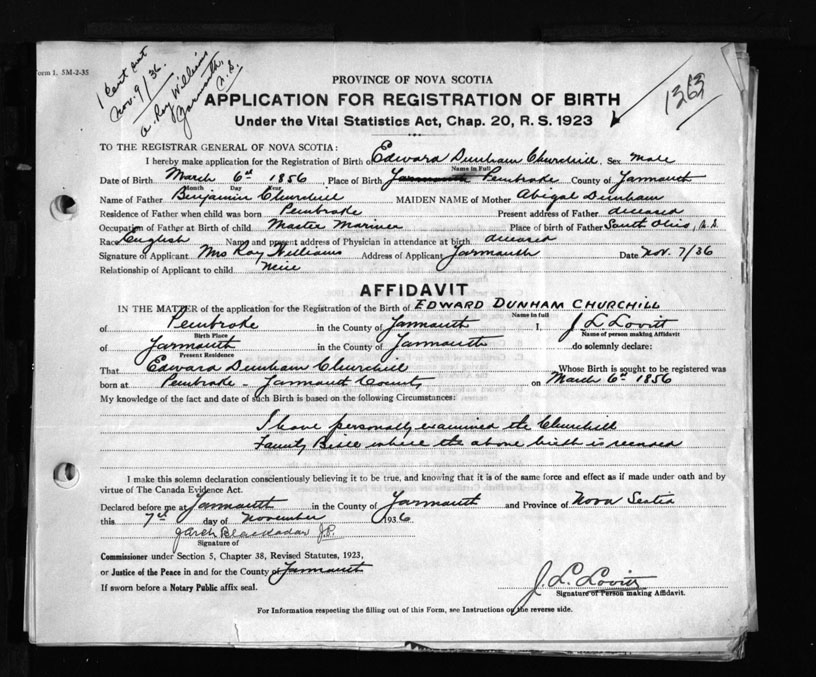 Form 1. 5M-2-35
1 Cert out
Nov. 9/36.
a. Roy Williams
Yarmouth,
N.S.
1363
PROVINCE OF NOVA SCOTIA
APPLICATION FOR REGISTRATION OF BIRTH
Under the Vital Statistics Act, Chap. 20, R. S. 1923
TO THE REGISTRAR GENERAL OF NOVA SCOTIA:
I hereby make application for the Registration of Birth of Edward Dunham Churchill. Sex Male
Name in Full
Date of Birth March 6th 1856 Place of Birth Yarmouth Pembroke County of Yarmouth
Month Day Year
Name of Father Benjamin Churchill MAIDEN NAME of Mother Abigal Dunham
Residence of Father when child was born Pembroke Present address of Father deceased
Occupation of Father at Birth of child Master Mariner Place of birth of Father South Ohio, N.S.
Race English Name and present address of Physician in attendance at birth deceased
Signature of Applicant Mrs Roy Williams Address of Applicant Yarmouth Date Nov. 7/36
Relationship of Applicant to child Neice
AFFIDAVIT
IN THE MATTER of the application for the Registration of the Birth of EDWARD DUNHAM CHURCHILL
Name in full
of Pembroke in the County of Yarmouth I, J. L. Lovitt
Birth Place Name of person making Affidavit
of Yarmouth in the County of Yarmouth do solemnly declare:
Present Residence
That Edward Dunham Churchill Whose Birth is sought to be registered was
born at Pembroke - Yarmouth County on March 6th 1856
My knowledge of the fact and date of such Birth is based on the following Circumstances:
I have personally examined the Churchill
Family Bible where the above birth is recorded
I make this solemn declaration conscientiously believing it to be true, and knowing that it is of the same force and effect as if made under oath and by
virtue of The Canada Evidence Act.
Declared before me at Yarmouth in the County of Yarmouth and Province of Nova Scotia
this 7th day of November 1936
J Arch Blackadar J.P.
Signature of
Commissioner under Section 5, Chapter 38, Revised Statutes, 1923,
or Justice of the Peace in and for the County of Yarmouth
If sworn before a Notary Public affix seal.
J. L. Lovitt
Signature of Person making Affidavit.
For Information respecting the filling out of this Form, see Instructions on the reverse side.